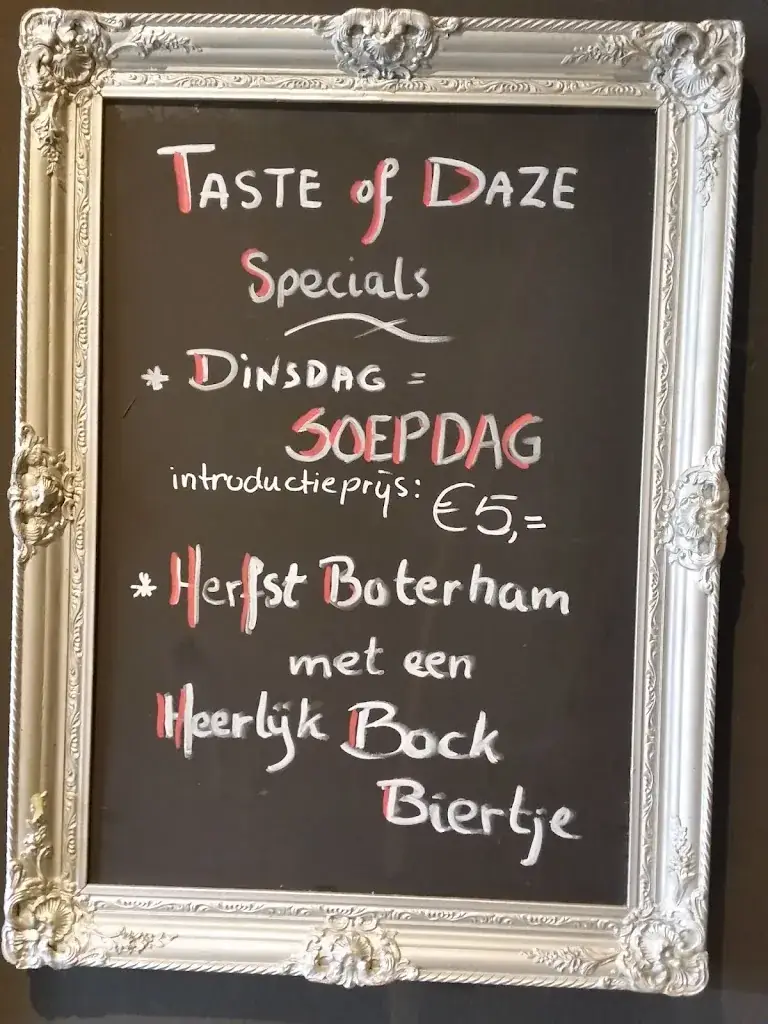 TASTE of DAZE
Specials
* DINSDAG =
SOEPDAG
introductieprijs: €5,=
* Herfst Boterham
met een
Heerlijk Bock
Biertje